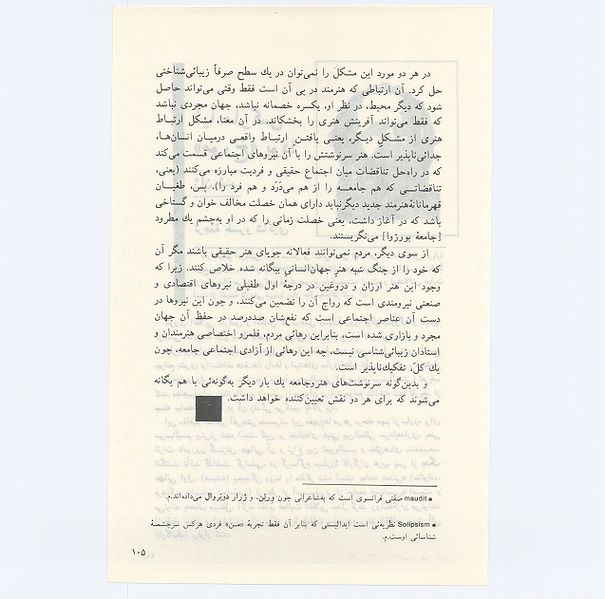 در هر دو مورد این مشکل را نمی‌توان در یك سطح صرفاً زیبائی‌شناختی
حل کرد. آن ارتباطی که هنرمند در پی آن است فقط وقتی می‌تواند حاصل
شود که دیگر محیط، در نظر او، یکسره خصمانه نباشد، جهان مجردی نباشد
که فقط می‌تواند آفرینش هنری را بخشکاند. در آن معنا، مشکل ارتباط
هنری از مشکلِ دیگر، یعنی یافتنِ ارتباط واقعی درمیان انسان‌ها،
جدائی‌ناپذیر است. هنر سرنوشتش را با آن نیروهای اجتماعی قسمت می‌کند
که در راه‌حل تناقضات میان اجتماع حقیقی و فردیت مبارزه می‌کنند (یعنی،
تناقضاتی که هم جامعه را از هم می‌دَرَد و هم فرد را). پس، طغیان
قهرمانانهٔ هنرمند جدید دیگر نباید دارای همان خصلت مخالف خوان و گستاخی
باشد که در آغاز داشت، یعنی خصلت زمانی را که در او به‌چشم یك مطرود
[جامعهٔ بورژوا] می‌نگریستند.
از سوی دیگر، مردم نمی‌توانند فعالانه جویای هنر حقیقی باشند مگر آن
که خود را از چنگ شبه هنرِ جهان‌انسانیِ بیگانه شده خلاص کنند. زیرا که
وجود این هنر ارزان و دروغین در درجهٔ اول طفیلی نیروهای اقتصادی و
صنعتی نیرومندی است که رواج آن را تضمین می‌کنند، و چون این نیروها در
دست آن عناصر اجتماعی است که نفع‌شان صددرصد در حفظ آن جهان
مجرد و بازاری شده است، بنابراین رهائی مردم، قلمرو اختصاصی هنرمندان و
استادان زیبائی‌شناسی نیست، چه این رهائی از آزادی اجتماعی جامعه، چون
یك کل، تفکیك‌ناپذیر است.
و بدین‌گونه سرنوشت‌های هنر و جامعه یك بار دیگر به‌گونه‌ئی با هم یگانه
می‌شوند که برای هر دو نقش تعیین‌کننده خواهد داشت.
● maudit صفتی فرانسوی است که به‌شاعرانی چون ورلن، و ژرار دونِروال می‌داده‌اند.م
● Solipsism نظریه‌ئی است ایدالیستی که بنابر آن فقط تجربهٔ «من» فردی هرکس سرچشمهٔ
شناسائی اوست.م.
۱۰۵